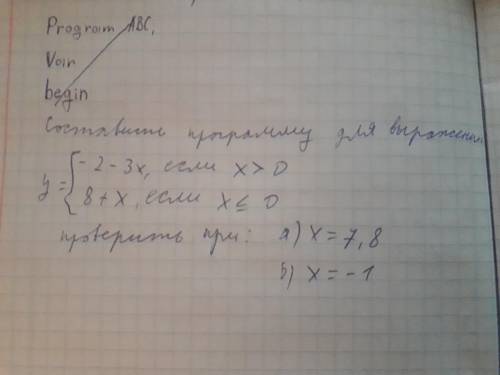 Program ABC,
Var
begin
Составить программу для выражения
y = { -2-3x, если x > 0
8+x, если x ≤ 0
проверить при: а) x = 7,8
б) x = -1